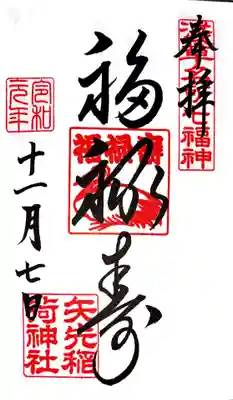 奉拝
福禄寿
福禄寿
令和
元年
十一月七日
矢先稲
荷神社